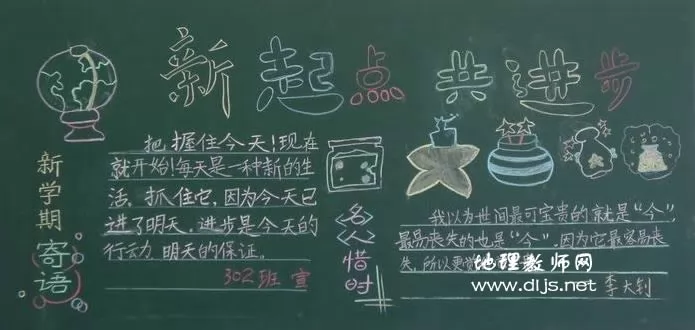 新起点 共进步
新学期寄语
把握住今天!现在
就开始!每天是一种新的生
活。抓住它,因为今天已
进了明天。进步是今天的
行动,明天的保证。
302班 宣
名人惜时
我以为世间最可宝贵的就是“今”,
最易丧失的也是“今”,因为它最容易丧
失,所以更
李大钊
地理教师网
www.dljs.net